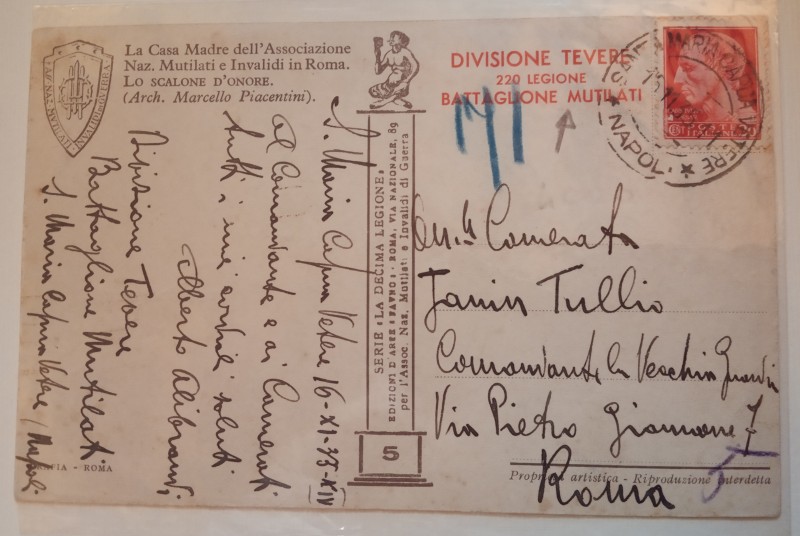 La Casa Madre dell'Associazione
Naz. Mutilati e Invalidi in Roma.
Lo scalone d'onore.
(Arch. Marcello Piacentini).
DIVISIONE TEVERE
220 LEGIONE
BATTAGLIONE MUTILATI
NAPOLI
S. Maria Capua Vetere 16-XI-35-XIV
Al Comandante e ai Camerati
tutti i miei cordiali saluti
Alberto Alibrandi
Divisione Tevere
Battaglione Mutilati
S. Maria Capua Vetere (Napoli)
SERIE: LA DECIMA LEGIONE:
EDIZIONI D'ARTE "SAVRO" - ROMA, VIA NAZIONALE, 89
per l'Assoc. Naz. Mutilati e Invalidi di Guerra
5
Camerata
Tullio
Comandante la Vecchia Guardia
Via Pietro Giannone 7
Roma
- ROMA
Proprietà artistica - Riproduzione interdetta